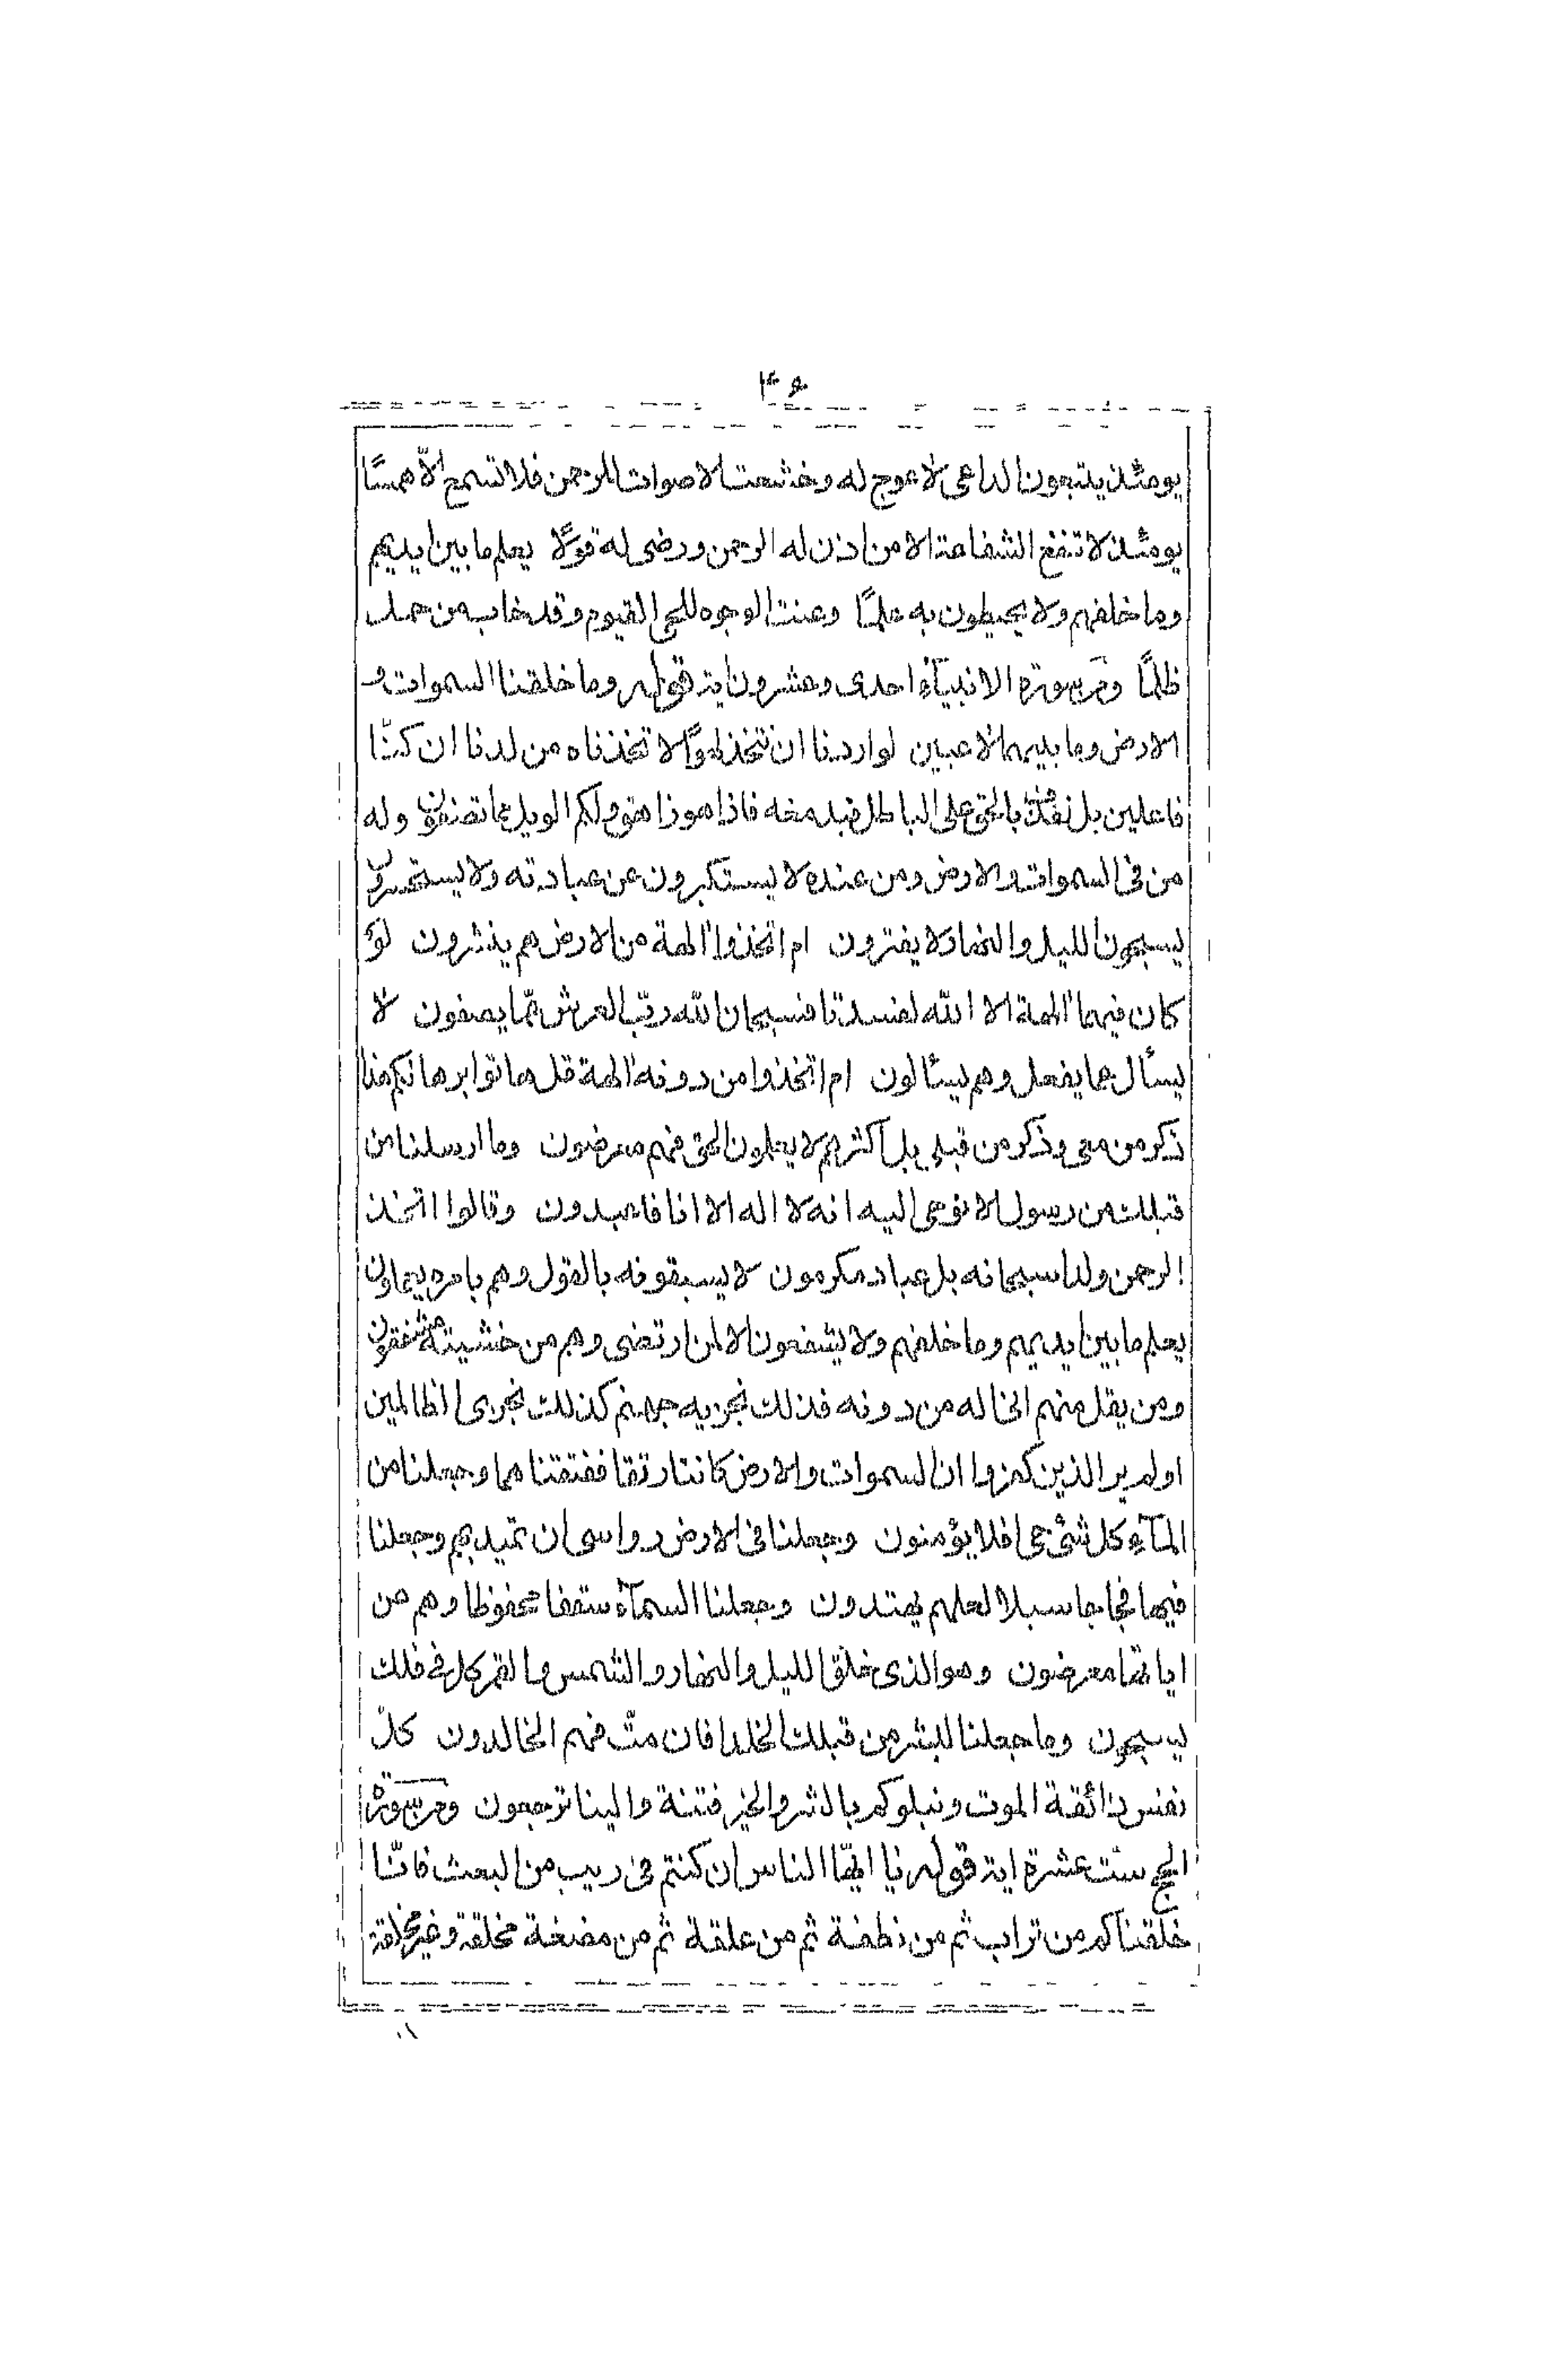 ٣٤
يومئذ يتبعون الداعى لا عوج له وخشعت الاصوات للرحمن فلا تسمع الّا همسًا
يومئذ لا تنفع الشفاعة الا من اذن له الرحمن ورضى له قولًا يعلم ما بين ايديهم
وما خلفهم ولا يحيطون به علمًا وعنت الوجوه للحى القيوم وقد خاب من حمل
ظلمًا ومن سورة الانبيآء احدى وعشرون اية قوله وما خلقنا السموات و
الارض وما بينهما لاعبين لو اردنا ان نتخذ لهوًا لاتخذناه من لدنا ان كنّا
فاعلين بل نقذف بالحق على الباطل فيدمغه فاذا هو زاهق ولكم الويل مما تصفون وله
من فى السموات والارض ومن عنده لا يستكبرون عن عبادته ولا يستحسرون
يسبحون الليل والنهار لا يفترون ام اتخذوا الهة من الارض هم ينشرون لو
كان فيهما الهة الا الله لفسدتا فسبحان الله ربّ العرش عمّا يصفون لا
يسأل عما يفعل وهم يسألون ام اتخذوا من دونه الهة قل هاتوا برهانكم هذا
ذكر من معى وذكر من قبلى بل اكثرهم لا يعلمون الحق فهم معرضون وما ارسلنا من
قبلك من رسول الا نوحى اليه انه لا اله الا انا فاعبدون وقالوا اتخذ
الرحمن ولدا سبحانه بل عباد مكرمون لا يسبقونه بالقول وهم بامره يعملون
يعلم ما بين ايديهم وما خلفهم ولا يشفعون الا لمن ارتضى وهم من خشيته مشفقون
ومن يقل منهم انى اله من دونه فذلك نجزيه جهنم كذلك نجزى الظالمين
اولم ير الذين كفروا ان السموات والارض كانتا رتقا ففتقناهما وجعلنا من
المآء كل شئ حى افلا يؤمنون وجعلنا فى الارض رواسى ان تميد بهم وجعلنا
فيها فجاجا سبلا لعلهم يهتدون وجعلنا السمآء سقفا محفوظا وهم من
اياتها معرضون وهو الذى خلق الليل والنهار والشمس والقمر كل فى فلك
يسبحون وما جعلنا لبشر من قبلك الخلد افان متّ فهم الخالدون كلّ
نفس ذائقة الموت ونبلوكم بالشر والخير فتنة والينا ترجعون ومن سورة
الحج ستّ عشرة اية قوله يا ايهّا الناس ان كنتم فى ريب من البعث فانّا
خلقناكم من تراب ثم من نطفة ثم من علقة ثم من مضغة مخلقة وغير مخلقة